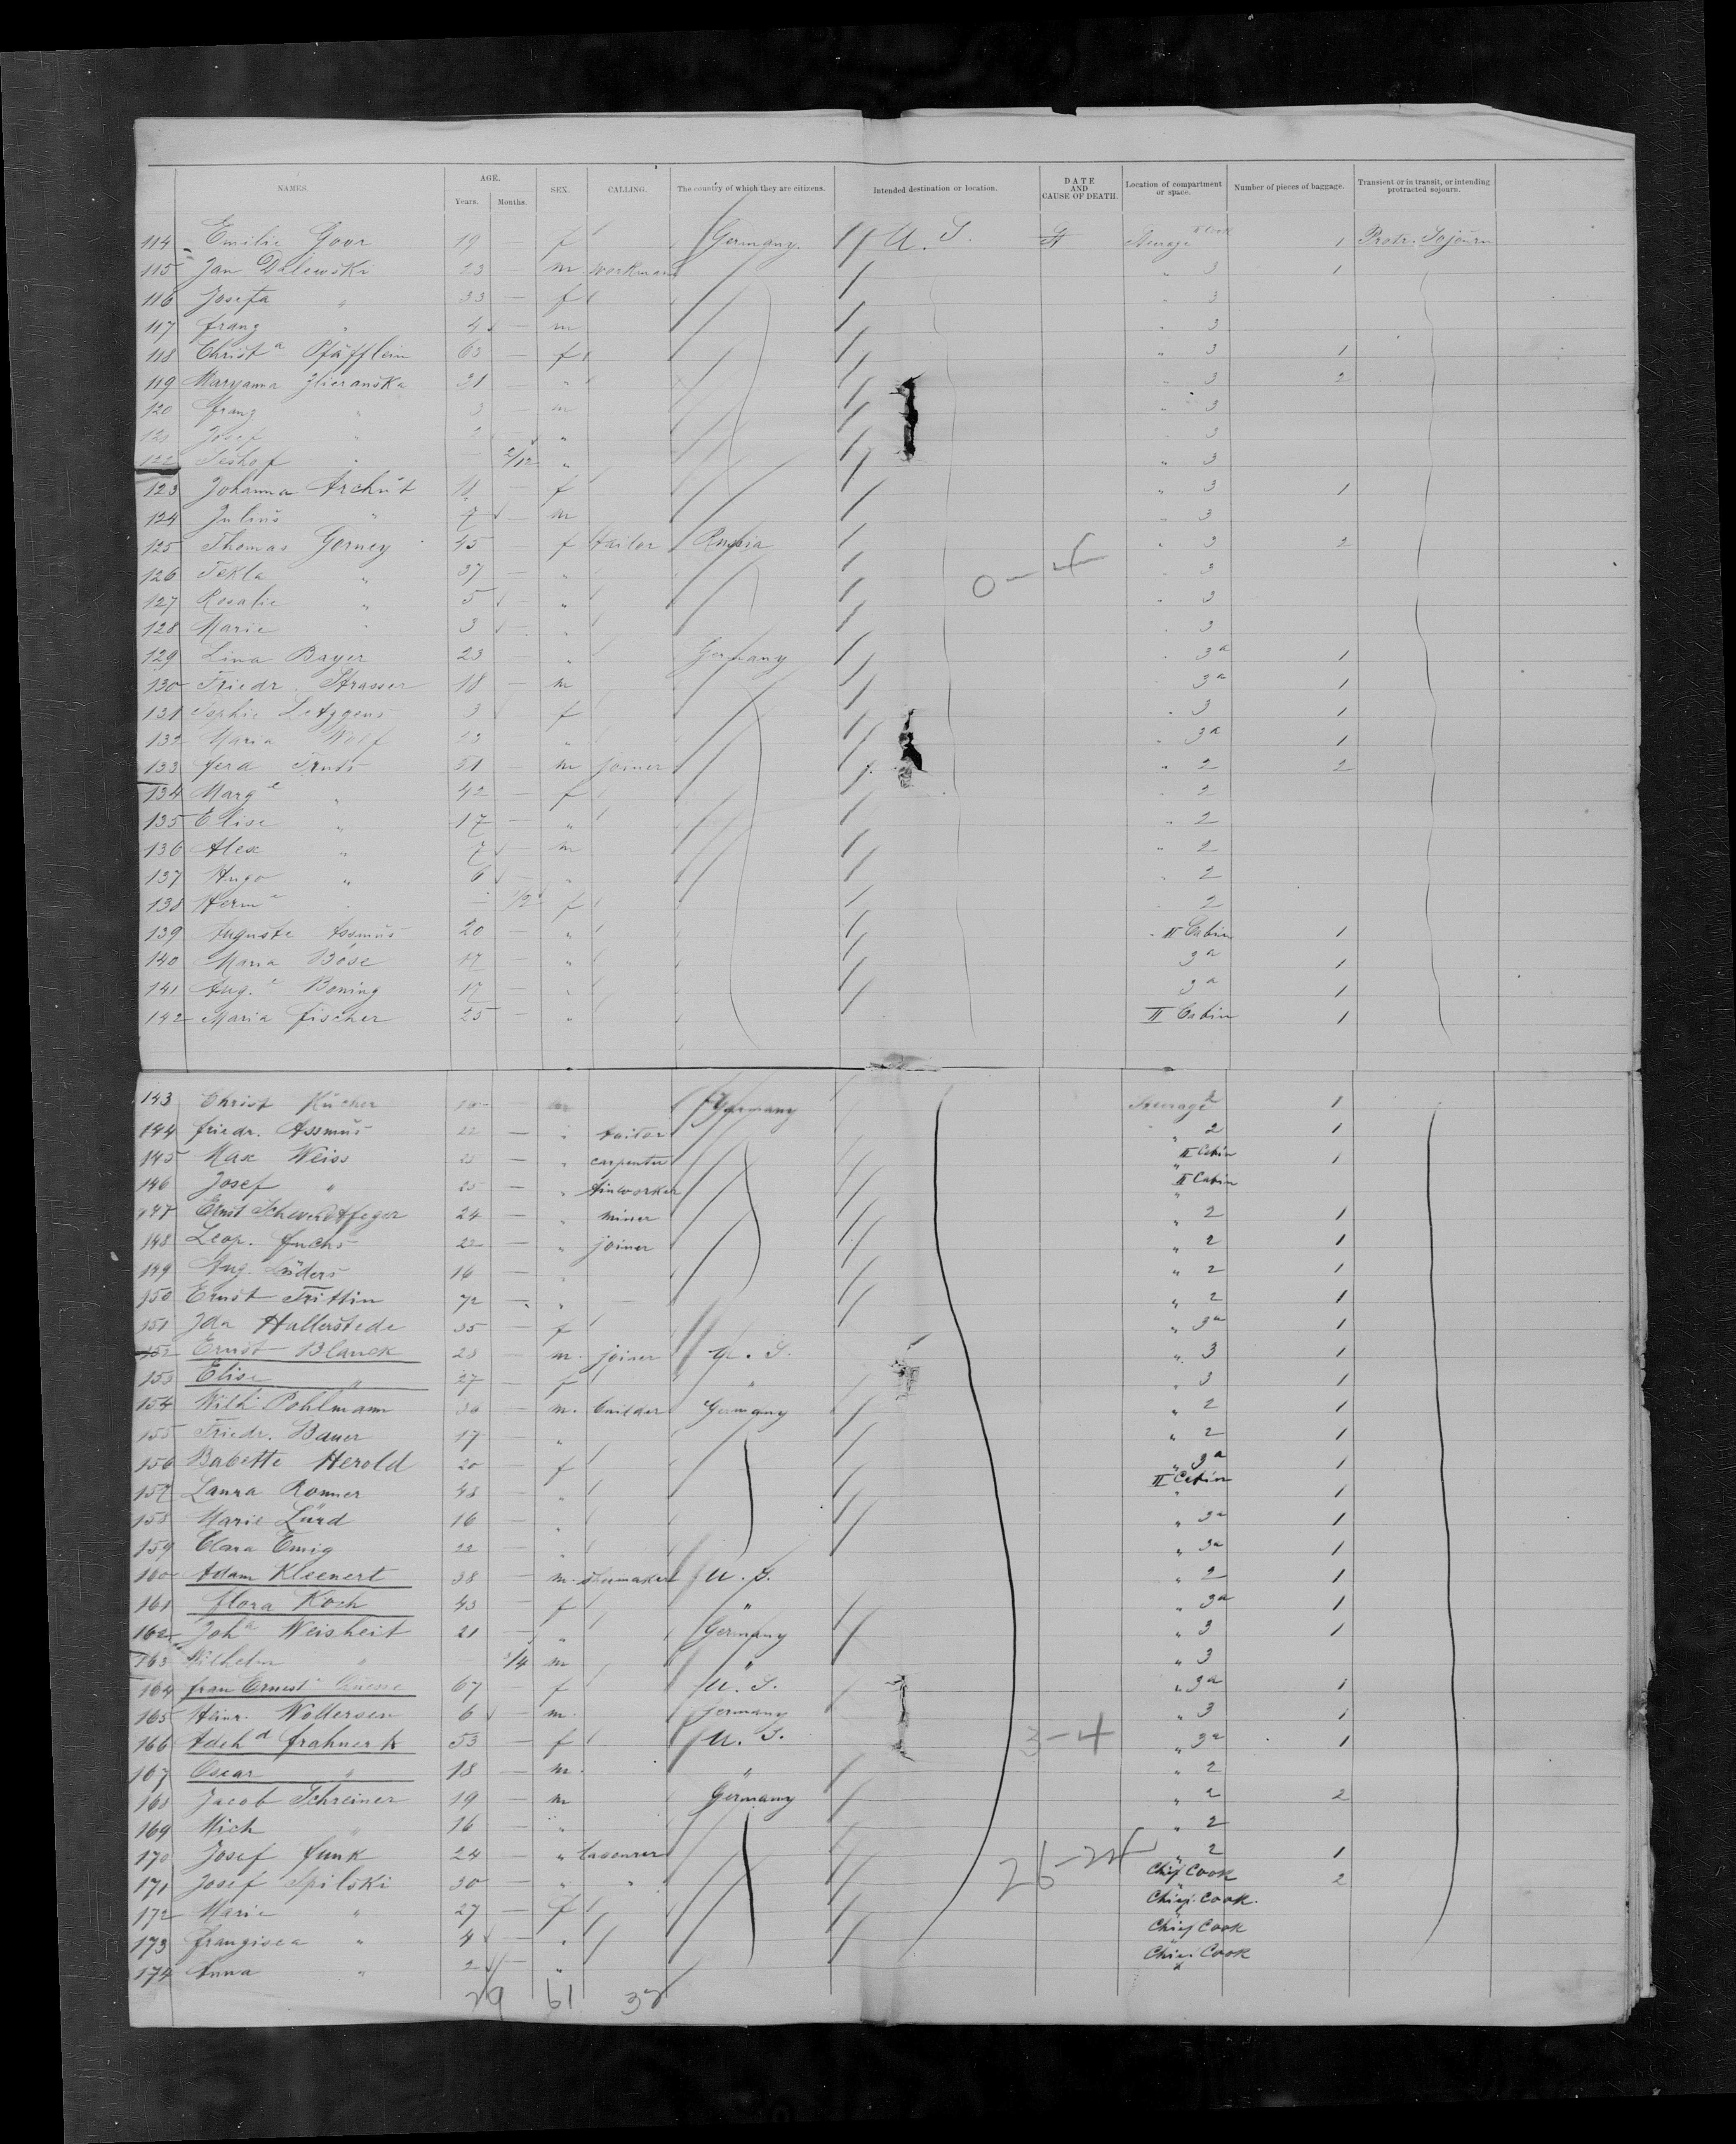 NAMES. AGE. Years. Months. SEX. CALLING. The country of which they are citizens. Intended destination or location. DATE AND CAUSE OF DEATH. Location of compartment or space. Number of pieces of baggage. Transient or in transit, or intending protracted sojourn.
114 Emilie Goor 19 f Germany U. S. Steerage 1 Protr. Sojourn
115 Jan Dalewski 23 — m workman " 3 1
116 Josefa " 33 — f " 3
117 Franz " 4 — m " 3
118 Christ a Pfäfflein 63 — f " 3 1
119 Maryanna 31 — " " 3 2
120 Franz " 3 — m " 3
121 Josef " 2 — " " 3
122 " — 2/12 " " 3
123 Johanna Archut 11 — f " 3 1
124 Julius " 7 — m " 3
125 Thomas Gorney 45 — f tailor Russia " 3 2
126 Tekla " 37 — " " 3
0 – 4
127 Rosalie " 5 — " " 3
128 Marie " 3 — " " 3
129 Lina Bayer 23 — " Germany " 3a 1
130 Friedr. Strasser 18 — m " 3a 1
131 Sophie 3 — f " 3 1
132 Maria Wolf 23 — " " 3a 1
133 Ferd 51 — m joiner " 2 2
134 Marg e " 42 — f " 2
135 Elise " 17 — " " 2
136 Alex " 7 — m " 2
137 Hugo " 6 — " " 2
138 Herm e " — 1/2 f " 2
139 Auguste Assmus 20 — " " II Cabin 1
140 Maria Böse 17 — " 3a 1
141 Aug. e Boning 17 — " 3a 1
142 Maria Fischer 25 — " II Cabin 1
143 Christ Kücher — m Germany Steerage 2 1
144 Friedr. Assmus 22 — " tailor " 2 1
145 Max Weiss 25 — " carpenter " II Cabin 1
146 Josef " 25 — " tinworker " II Cabin
147 Ernst Schwerdtfeger 24 — " miner " 2 1
148 Leop. Fuchs 22 — " joiner " 2 1
149 Aug. Lüders 16 — " " 2 1
150 Ernst Trittin 72 — " " 2 1
151 Ida Hullerstede 35 — f " 3a 1
152 Ernst Blanck 28 — m. joiner U. S. " 3 1
153 Elise " 27 — f " " 3 1
154 Wilh. Pohlmann 36 — m. builder Germany " 2 1
155 Friedr. Bauer 17 — " " 2 1
156 Babette Herold 20 — f " 3a 1
157 Laura Ronner 48 — " II Cabin 1
158 Marie Lürd 16 — " " 3a 1
159 Clara Emig 22 — " " 3a 1
160 Adam Kleenert 38 — m. shumaker U. S. " 2 1
161 Flora Koch 43 — f " " 3a 1
162 Joh a Weisheit 21 — " Germany " 3 1
163 Wilhelm " 3/4 m " " 3
164 Frau Ernest 67 — f U. S. " 3a 1
165 Heinr. Woltersen 6 — m. Germany " 3 1
166 Adeh d Frahnerk 53 — f U. S. 3 – 4 " 3a 1
167 Oscar " 18 — m. " " 2
168 Jacob Schreiner 19 — m Germany " 2 2
169 Mich " 16 — " " 2
170 Josef Funk 24 — " labourer " 2 1
26 – 24
171 Josef Spilski 30 — " " Chief Cook 2
172 Marie " 27 — f Chief Cook.
173 Franzisca " 4 — " Chief Cook
174 Anna " 2 — " Chief Cook
29 61 32